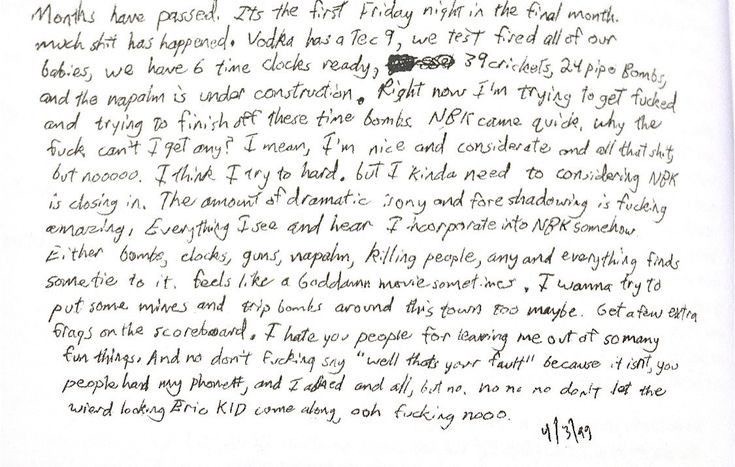 Months have passed. Its the first Friday night in the final month.
much shit has happened. Vodka has a Tec 9, we test fired all of our
babies, we have 6 time clocks ready, 39 crickets, 24 pipe bombs,
and the napalm is under construction. Right now I'm trying to get fucked
and trying to finish off these time bombs. NBK came quick. why the
fuck can't I get any? I mean, I'm nice and considerate and all that shit,
but nooooo. I think I try to hard. but I kinda need to considering NBK
is closing in. The amount of dramatic irony and foreshadowing is fucking
amazing. Everything I see and hear I incorporate into NBK somehow.
Either bombs, clocks, guns, napalm, killing people, any and everything finds
some tie to it. feels like a Goddamn movie sometimes. I wanna try to
put some mines and trip bombs around this town too maybe. Get a few extra
frags on the scoreboard. I hate you people for leaving me out of so many
fun things. And no don't fucking say "well thats your fault" because it isnt, you
people had my phone#, and I asked and all, but no. no no no don't let the
wierd looking Eric KID come along, ooh fucking nooo.
4/3/99